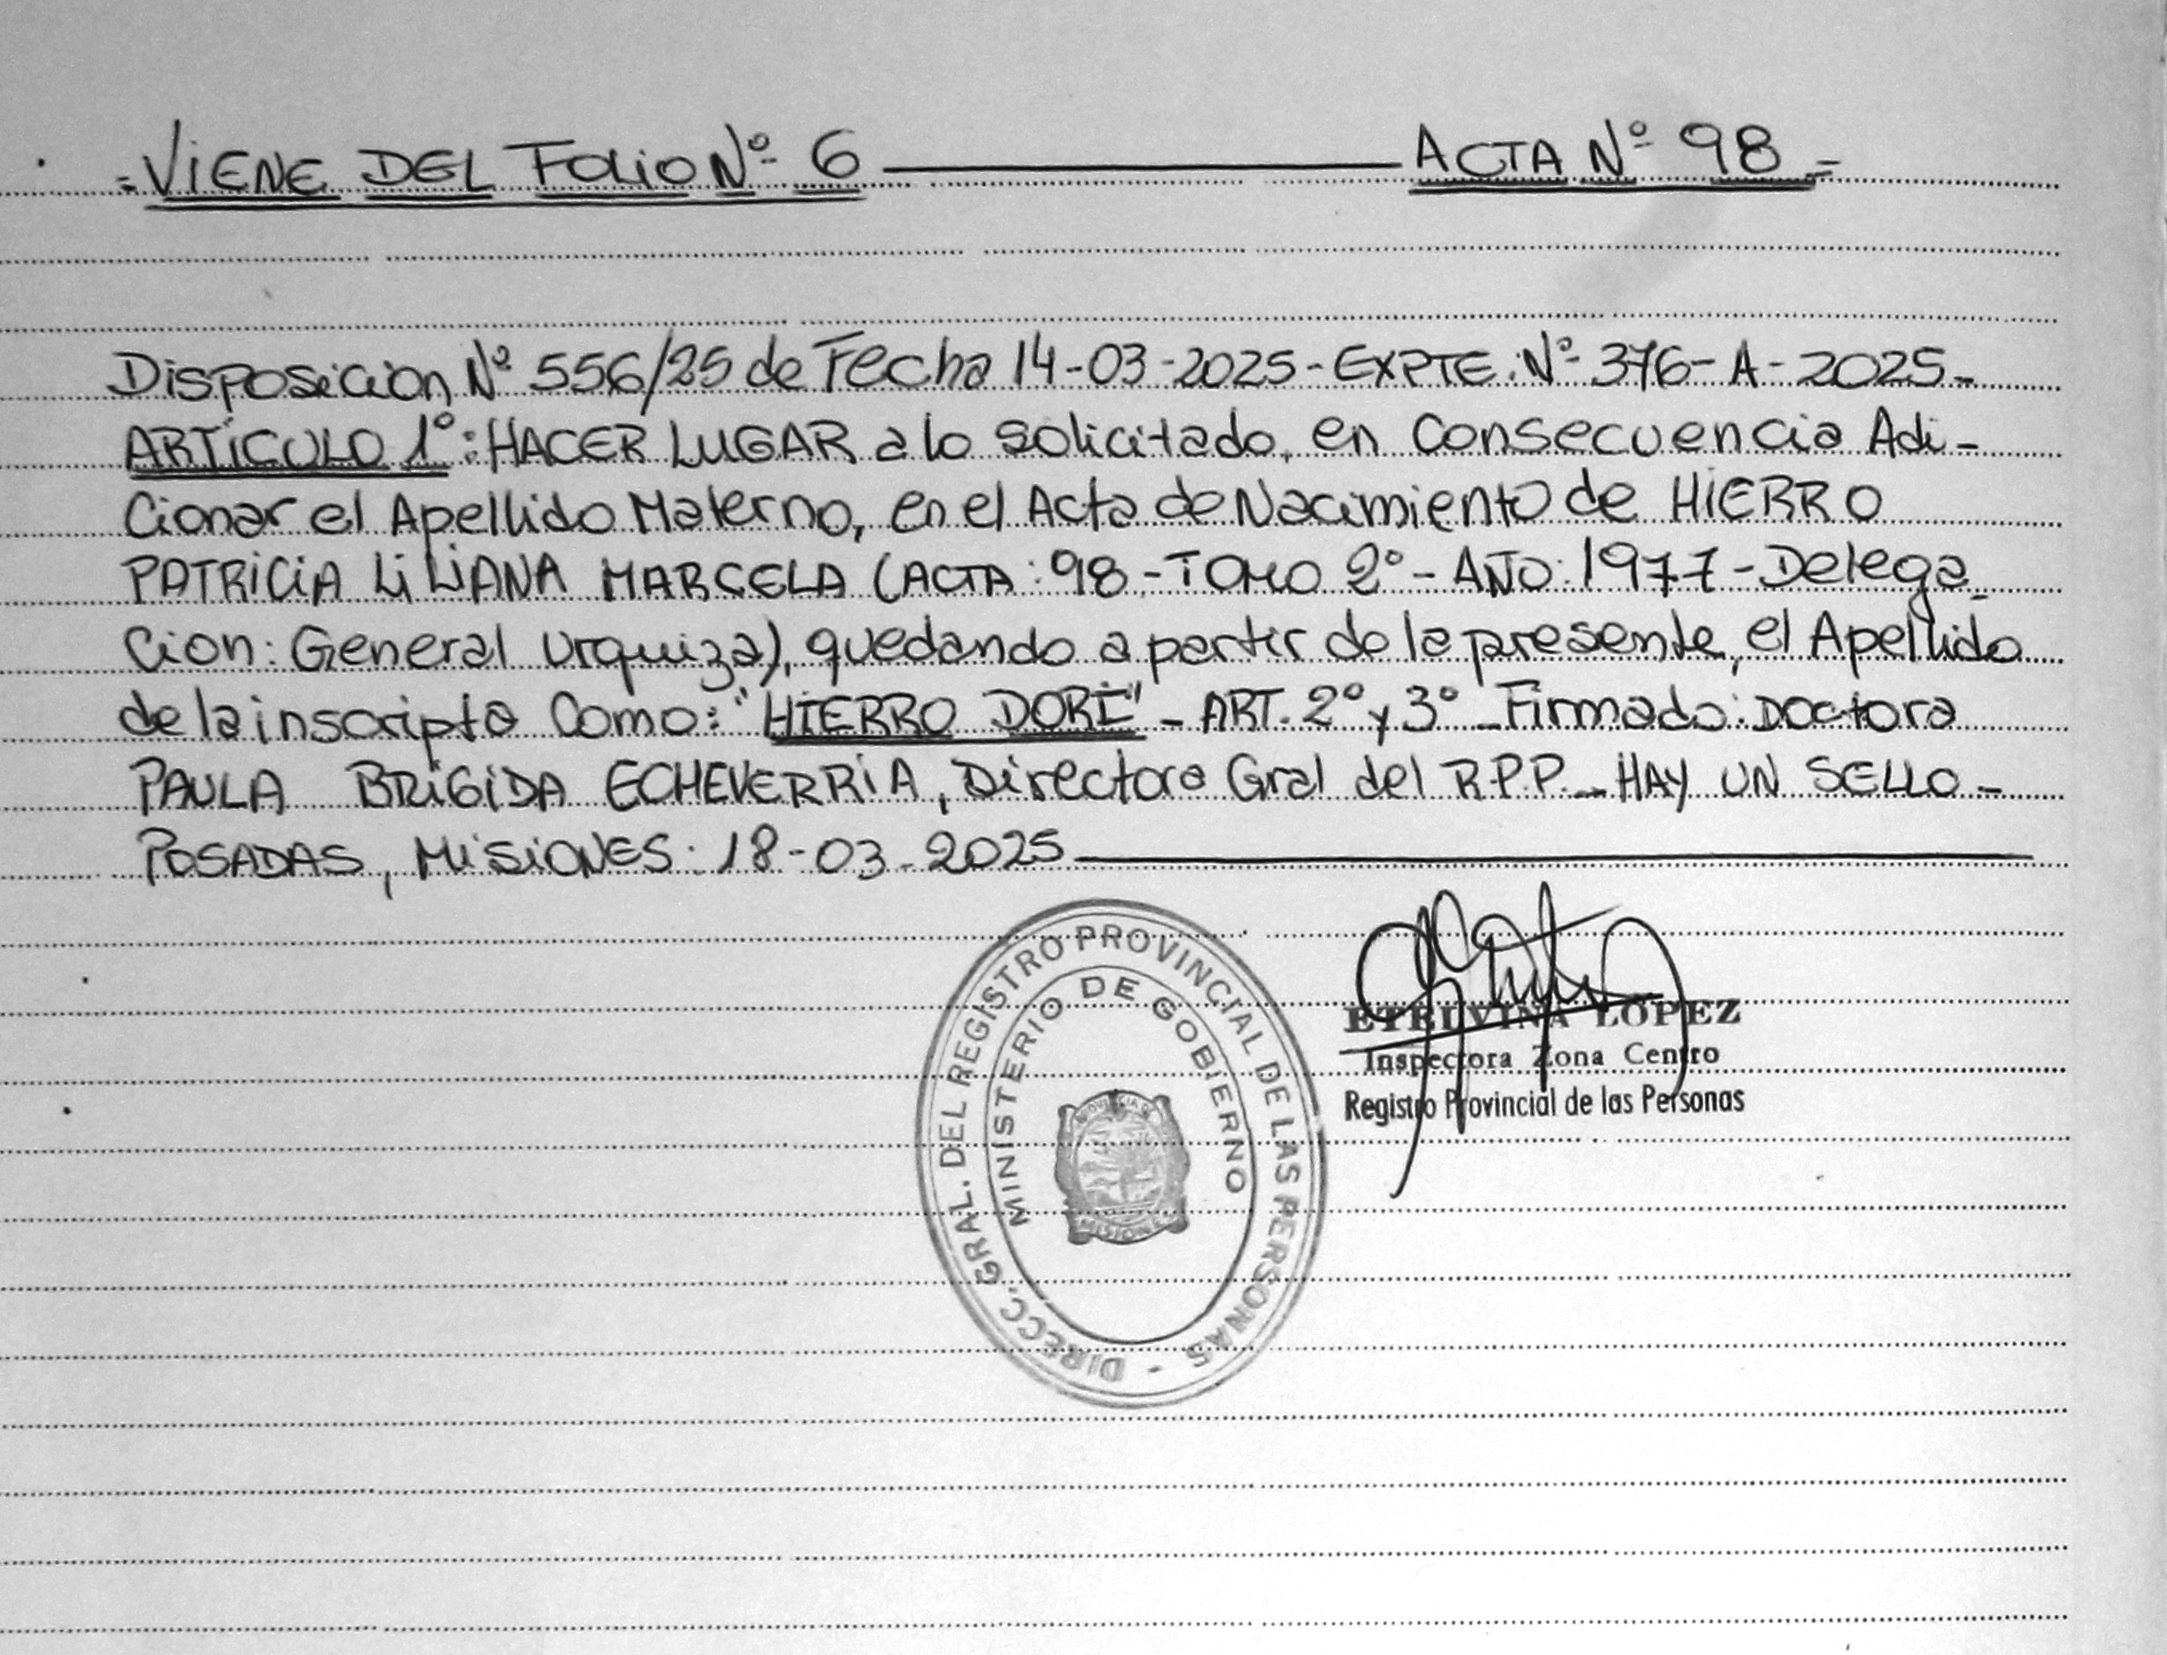 =VIENE DEL FOLIO Nº 6 ACTA Nº 98=
Disposicion Nº 556/25 de Fecha 14-03-2025-EXPTE. Nº 376-A-2025-
ARTICULO 1º: HACER LUGAR a lo solicitado, en Consecuencia Adi-
Cionar el Apellido Materno, en el Acta de Nacimiento de HIERRO
PATRICIA LILIANA MARCELA (ACTA: 98-TOMO 2º-AÑO: 1977-Delega-
Cion: General Urquiza), quedando a partir de la presente, el Apellido
de la inscripta Como: "HIERRO DORI" - ART. 2º y 3º - Firmado: Doctora
PAULA BRIGIDA ECHEVERRIA, Directora Gral del R.P.P.- HAY UN SELLO-
POSADAS, MISIONES: 18-03-2025
DIRECC. GRAL. DEL REGISTRO PROVINCIAL DE LAS PERSONAS -
MINISTERIO DE GOBIERNO
PROVINCIA DE
MISIONES
ETELVINA LOPEZ
Inspectora Zona Centro
Registro Provincial de las Personas